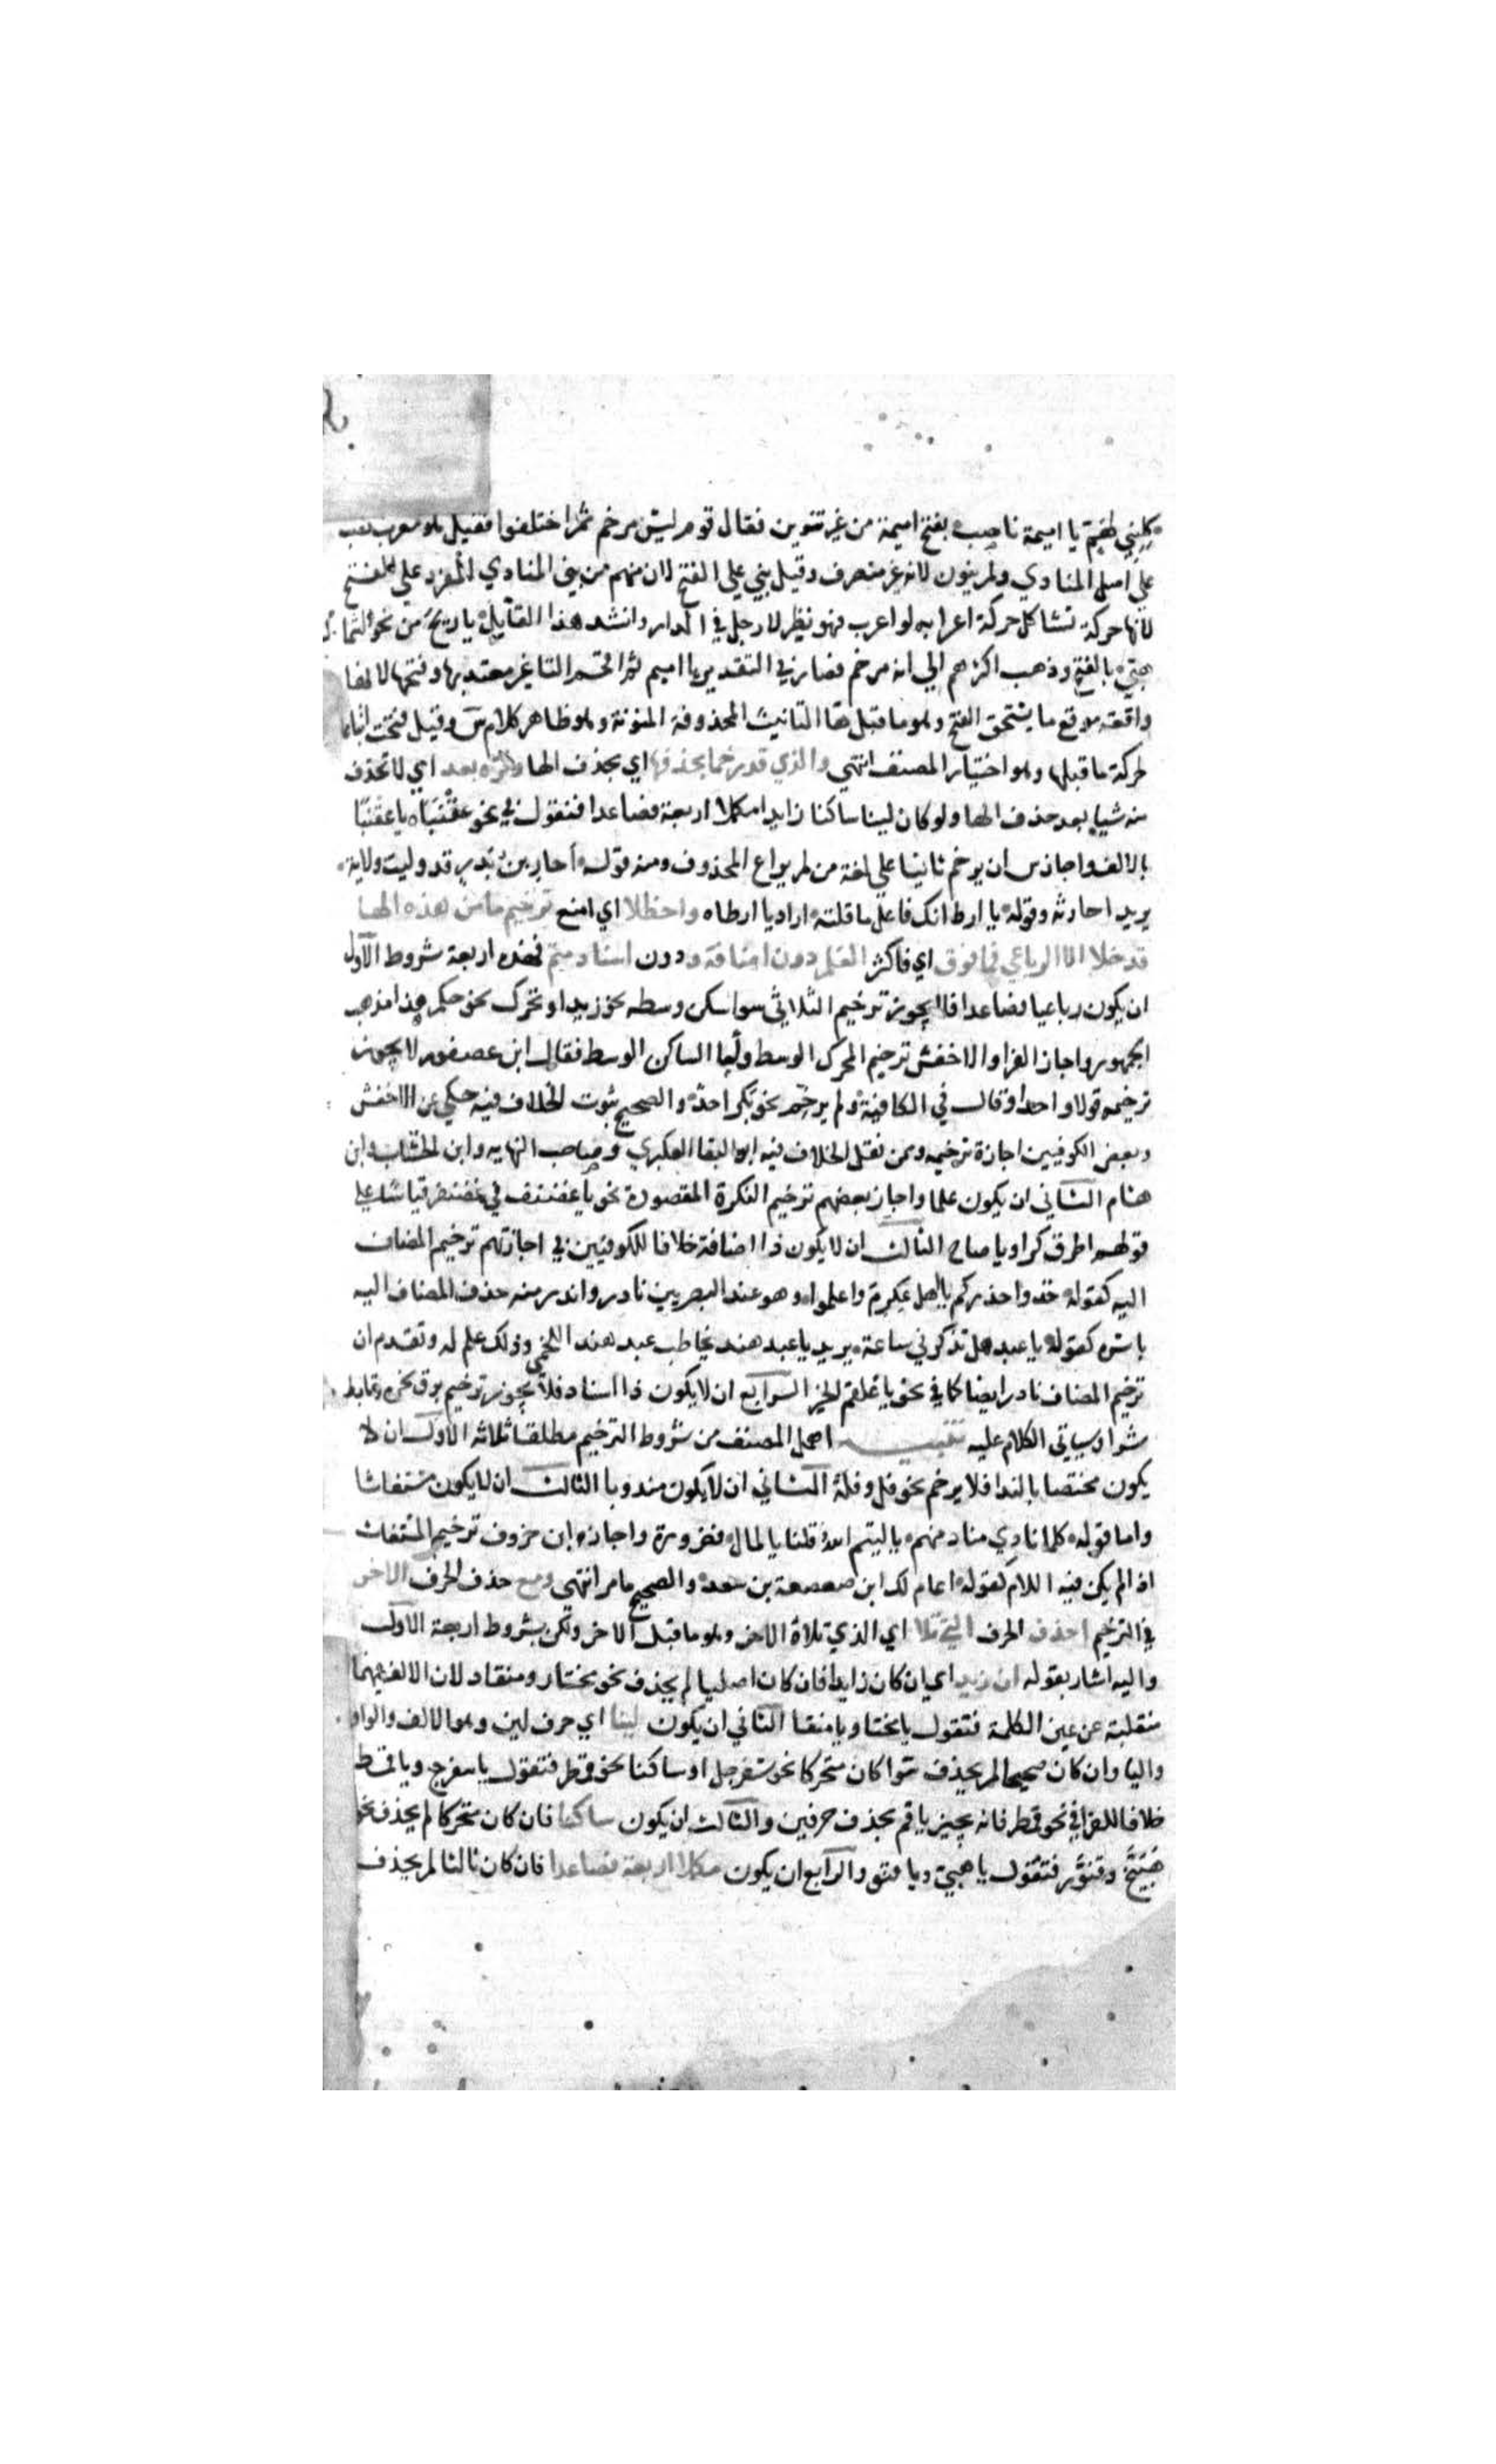 كليني لهم يا اميمة ناصب بفتح اميمة من غير تنوين فقال قوم ليس مرخم ثم اختلفوا فقيل هو معرب نصب
علي اصل المنادي ولم ينون لانه غير منصرف وقيل بني علي الفتح لان منهم من يبني المنادي المفرد علي الفتح
لانها حركة تشاكل حركة اعرابه لو اعرب فهو نظير لا رجل في الدار وانشد هذا القايل يا ريح من نحو الشمال
هبي بالفتح وذهب اكثرهم الي انه مرخم فصار في التقدير يا اميم ثم اقحم التا غير معتد بها وفتحها لانها
واقعة موقع ما يستحق الفتح وهو ما قبل ها التانيث المحذوفة المنونة وهو ظاهر كلام س وقيل فتحت اتباعا
لحركة ما قبلها وهو اختيار المصنف انتهي والذي قد رخما بحذفها اي بحذف الها وفره بعد اي لا تحذف
منه شيا بعد حذف الها ولو كان لينا ساكنا زايدا مكملا اربعة فصاعدا فتقول في نحو عقنباه يا عقنبا
بالالف واجاز س ان يرخم ثانيا علي لغة من لم يراع المحذوف ومنه قوله احار بن بدر قد وليت ولاية
يريد احارثه وقوله يا ارط انك فاعل ما قلته اراد يا ارطاه واحظلا اي امنع ترخيم ما من هذه الها
قد خلا الا الرباعي فما فوق اي فاكثر العلم دون اضافة ودون اسناد متم فهذه اربعة شروط الاول
ان يكون رباعيا فصاعدا فلا يجوز ترخيم الثلاثي سوا سكن وسطه نحو زيد او تحرك نحو حكم هذا مذهب
الجمهور واجاز الفرا والاخفش ترخيم المحرك الوسط واما الساكن الوسط فقال ابن عصفور لا يجوز
ترخيمه قولا واحدا وقال في الكافية ولم يرخم نحو بكر احد والصحيح ثبوت الخلاف فيه حكي عن الاخفش
وبعض الكوفيين اجازة ترخيمه وممن نقل الخلاف فيه ابو البقا العكبري وصاحب النهايه وابن الخشاب وابن
هشام الثاني ان يكون علما واجاز بعضهم ترخيم النكرة المقصودة نحو يا غضنف في غضنفر قياسا علي
قولهم اطرق كرا ويا صاح الثالث ان لا يكون ذا اضافة خلافا للكوفيين في اجازتهم ترخيم المضاف
اليه كقوله خذوا حذركم يا ال عكرم واعلموا وهو عند البصريين نادر واندر منه حذف المضاف اليه
باسره كقوله يا عبد هل تذكرني ساعة يريد يا عبد هند يخاطب عبد هند اللخمي وذلك علم له وتقدم ان
ترخيم المضاف نادر ايضا كما في نحو يا علقم الخير الرابع ان لا يكون ذا اسناد فلا يجوز ترخيم برق نحره وتابط
شرا وسياتي الكلام عليه تنبيه اهمل المصنف من شروط الترخيم مطلقا ثلاثه الاول ان لا
يكون مختصا بالندا فلا يرخم نحو فل وفلة الثاني ان لا يكون مندوبا الثالث ان لا يكون مستغاثا
واما قوله كلما نادي مناد منهم يا لتيم الله قلنا يا لمال فضرورة واجاز ابن خروف ترخيم المستغاث
اذا لم يكن فيه اللام كقوله اعام لك ابن صعصعة بن سعد والصحيح ما مر انتهي ومع حذف الحرف الاخر
في الترخيم احذف الحرف الذي تلا اي الذي تلاه الاخر وهو ما قبل الاخر ولكن بشروط اربعة الاول
واليه اشار بقوله ان زيد اي ان كان زايدا فان كان اصليا لم يحذف نحو مختار ومنقاد لان الالف فيهما
منقلبة عن عين الكلمة فتقول يا مختا ويا منقا الثاني ان يكون لينا اي حرف لين وهو الالف والواو
واليا وان كان صحيحا لم يحذف سوا كان متحركا نحو سفرجل او ساكنا نحو قمطر فتقول يا سفرج ويا قمط
خلافا للفرا في نحو قمطر فانه يجيز يا قم بحذف حرفين والثالث ان يكون ساكنا فان كان متحركا لم يحذف نحو
هبيخ وقنور فتقول يا هبي ويا قنو والرابع ان يكون مكملا اربعة فصاعدا فان كان ثالثا لم يحذف